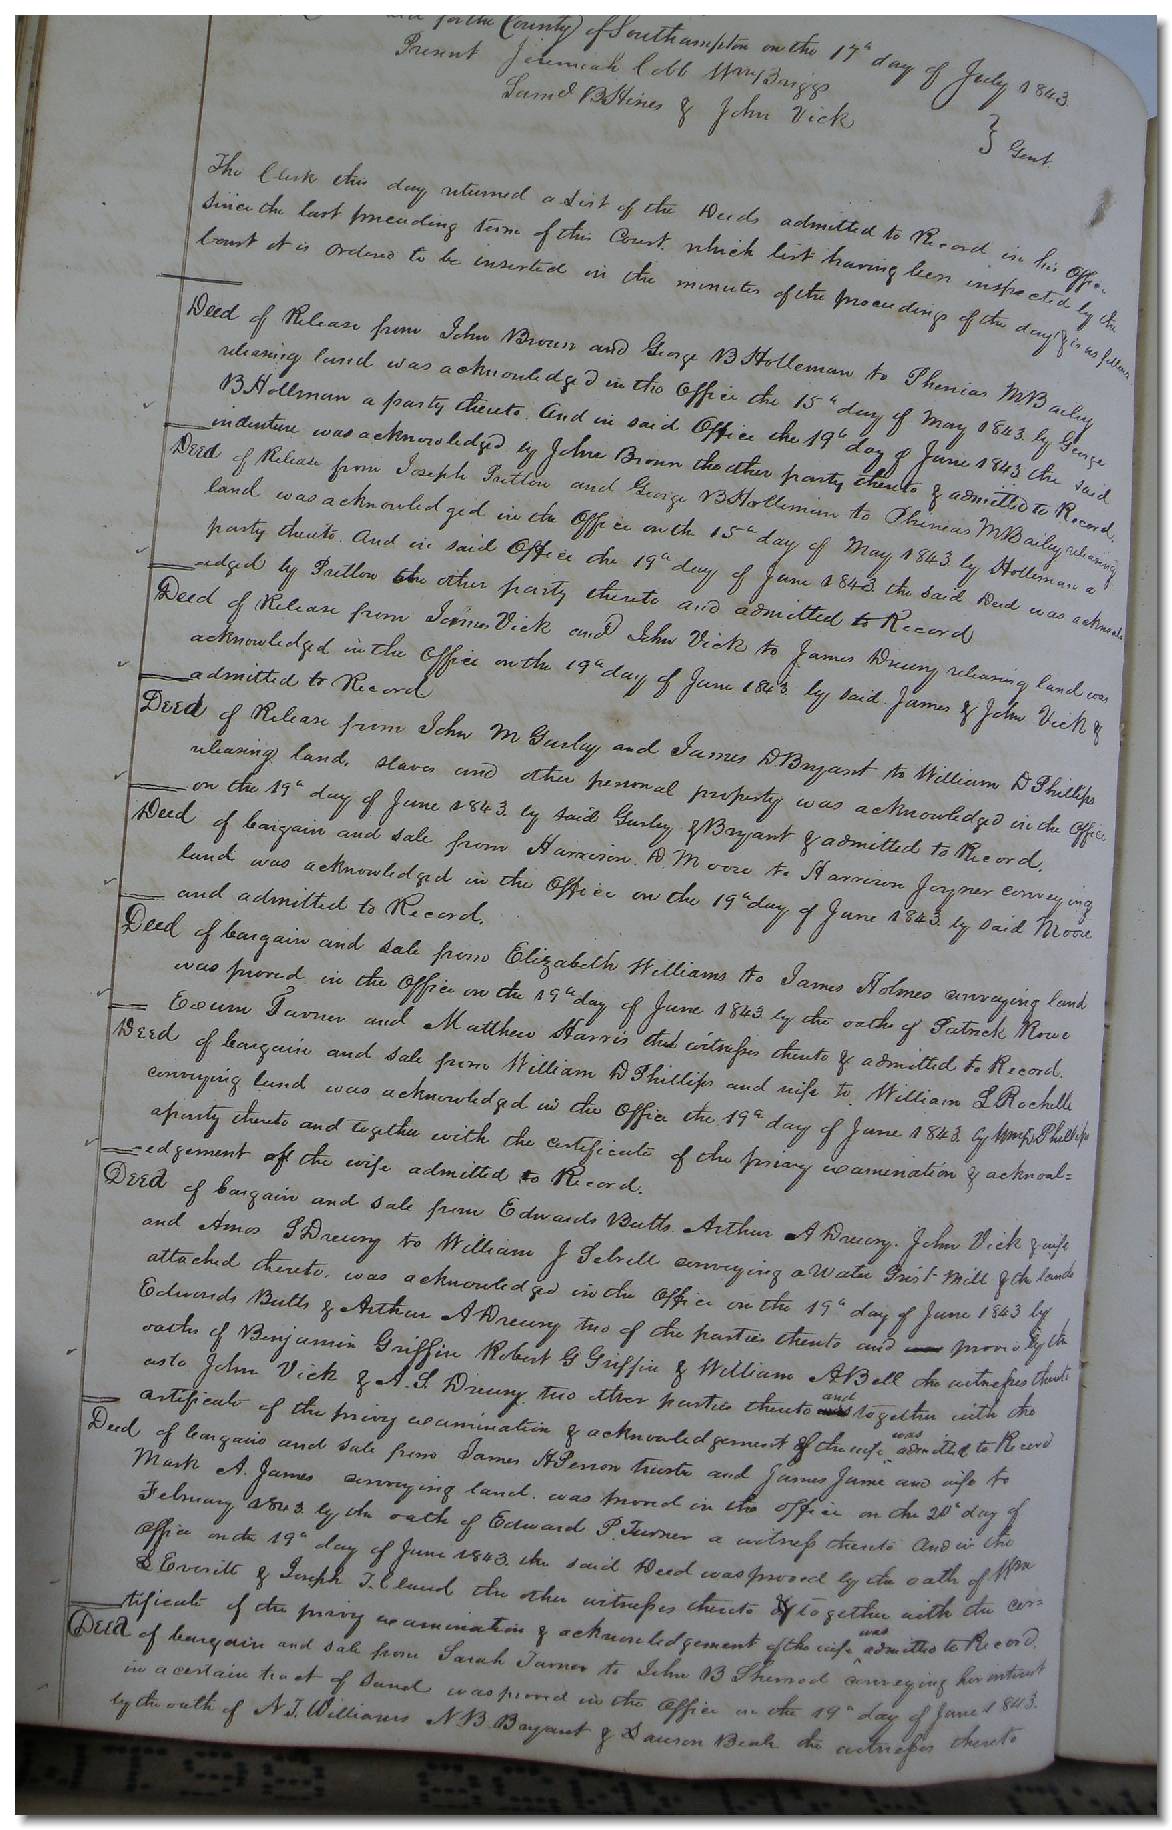 for the County of Southampton on the 17th day of July 1843.
Present Jeremiah Cobb Wm Briggs
Saml B Hines & John Vick } Gent.
The Clerk this day returned a List of the Deeds admitted to Record in his Office
since the last preceeding term of this Court. which list having been inspected by the
Court it is ordered to be inserted in the minutes of the proceedings of the day & is as follows
Deed of Release from John Brown and George B Holleman to Phenias M Bailey
releasing land was acknowledged in the Office the 15th day of May 1843. by George
B Holleman a party thereto. And in said Office the 19th day of June 1843. the said
indenture was acknowledged by John Brown the other party thereto & admitted to Record,
Deed of Release from Joseph Pretlow and George B Holleman to Phenias M Bailey releasing
land was acknowledged in the Office on the 15th day of May 1843. by Holleman a
party thereto. And in said Office the 19th day of June 1843. the said Deed was acknowl-
edged by Pretlow the other party thereto and admitted to Record
Deed of Release from James Vick and John Vick to James Drewry releasing land was
acknowledged in the Office on the 19th day of June 1843 by said James & John Vick &
admitted to Record
Deed of Release from John M Gurley and James D Bryant to William D Phillips
releasing land, slaves and other personal property was acknowledged in the Office
on the 19th day of June 1843. by said Gurley & Bryant & admitted to Record.
Deed of bargain and sale from Harrison. D. Moore to Harrison Joyner conveying
land was acknowledged in the Office on the 19th day of June 1843. by said Moore
and admitted to Record.
Deed of bargain and sale from Elizabeth Williams to James Holmes conveying land
was proved in the Office on the 19th day of June 1843 by the oaths of Patrick Rowe
Exum Turner and Matthew Harris the witnesses thereto & admitted to Record.
Deed of bargain and sale from William D Phillips and wife to William L Rochelle
conveying land was acknowledged in the Office the 19th day of June 1843. by Wm D Phillips
a party thereto and together with the certificate of the privy examination & acknowl=
=edgement of the wife admitted to Record.
Deed of bargain and sale from Edwards Butts. Arthur A Drewry. John Vick & wife
and Amos S Drewry to William J Sebrell conveying a Water Grist Mill & the lands
attached thereto. was acknowledged in the Office on the 19th day of June 1843 by
Edwards Butts & Arthur A Drewry two of the parties thereto and proved by the
oaths of Benjamin Griffin Robert G Griffin & William A Bell the witnesses thereto
as to John Vick & A. S. Drewry two other parties thereto and together with the
certificate of the privy examination & acknowledgement of the wife was admitted to Record
Deed of bargain and sale from James H Person trustee and James James and wife to
Mark A. James conveying land. was proved in the office on the 20th day of
February 1843. by the oath of Edward P. Turner a witness thereto And in the
Office on the 19th day of June 1843. the said Deed was proved by the oath of Wm
L Everitt & Joseph T. Claud the other witnesses thereto & together with the cer=
tificate of the privy examination & acknowledgement of the wife was admitted to Record.
Deed of bargain and sale from Sarah Turner to John B Sherrod conveying her interest
in a certain tract of Land was proved in the Office on the 19th day of June 1843.
by the oath of N. T. Williams N. B. Bryant & Lawson Beale the witnesses thereto